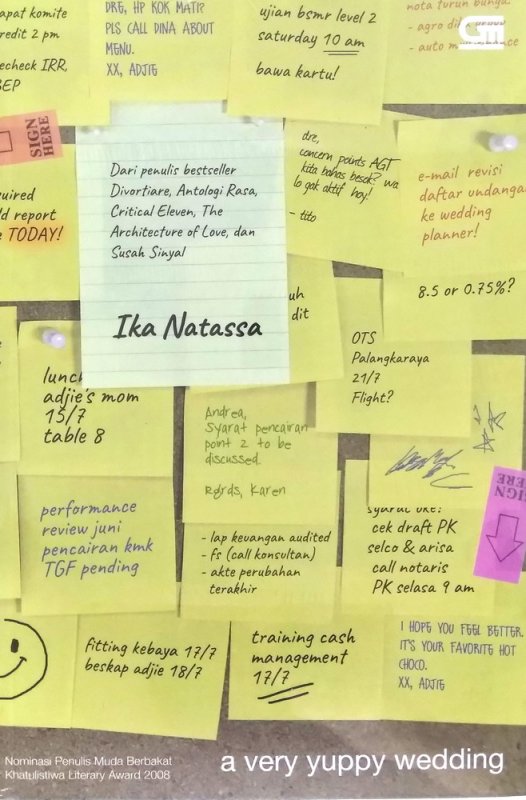 apat komite
redit 2 pm
recheck IRR,
BEP
DRE, HP KOK MATI?
PLS CALL DINA ABOUT
MENU.
XX, ADJIE
ujian bsmr level 2
saturday 10 am
bawa kartu!
nota turun bunga
- agro
- auto
SIGN
HERE
quired
ld report
TODAY!
Dari penulis bestseller
Divortiare, Antologi Rasa,
Critical Eleven, The
Architecture of Love, dan
Susah Sinyal
Ika Natassa
dre,
concern points AGT
kita bahas besok? wa
lo gak aktif hoy!
- tito
e-mail revisi
daftar undangan
ke wedding
planner!
8.5 or 0.75%?
uh
dit
OTS
Palangkaraya
21/7
Flight?
lunch
adjie's mom
15/7
table 8
Andrea,
Syarat pencairan
point 2 to be
discussed.
Rgrds, Karen
SIGN
HERE
performance
review juni
pencairan kmk
TGF pending
- lap keuangan audited
- fs (call konsultan)
- akte perubahan
terakhir
syarat oke!
cek draft PK
selco & arisa
call notaris
PK selasa 9 am
fitting kebaya 17/7
beskap adjie 18/7
training cash
management
17/7
I HOPE YOU FEEL BETTER.
IT'S YOUR FAVORITE HOT
CHOCO.
XX, ADJIE
Nominasi Penulis Muda Berbakat
Khatulistiwa Literary Award 2008
a very yuppy wedding